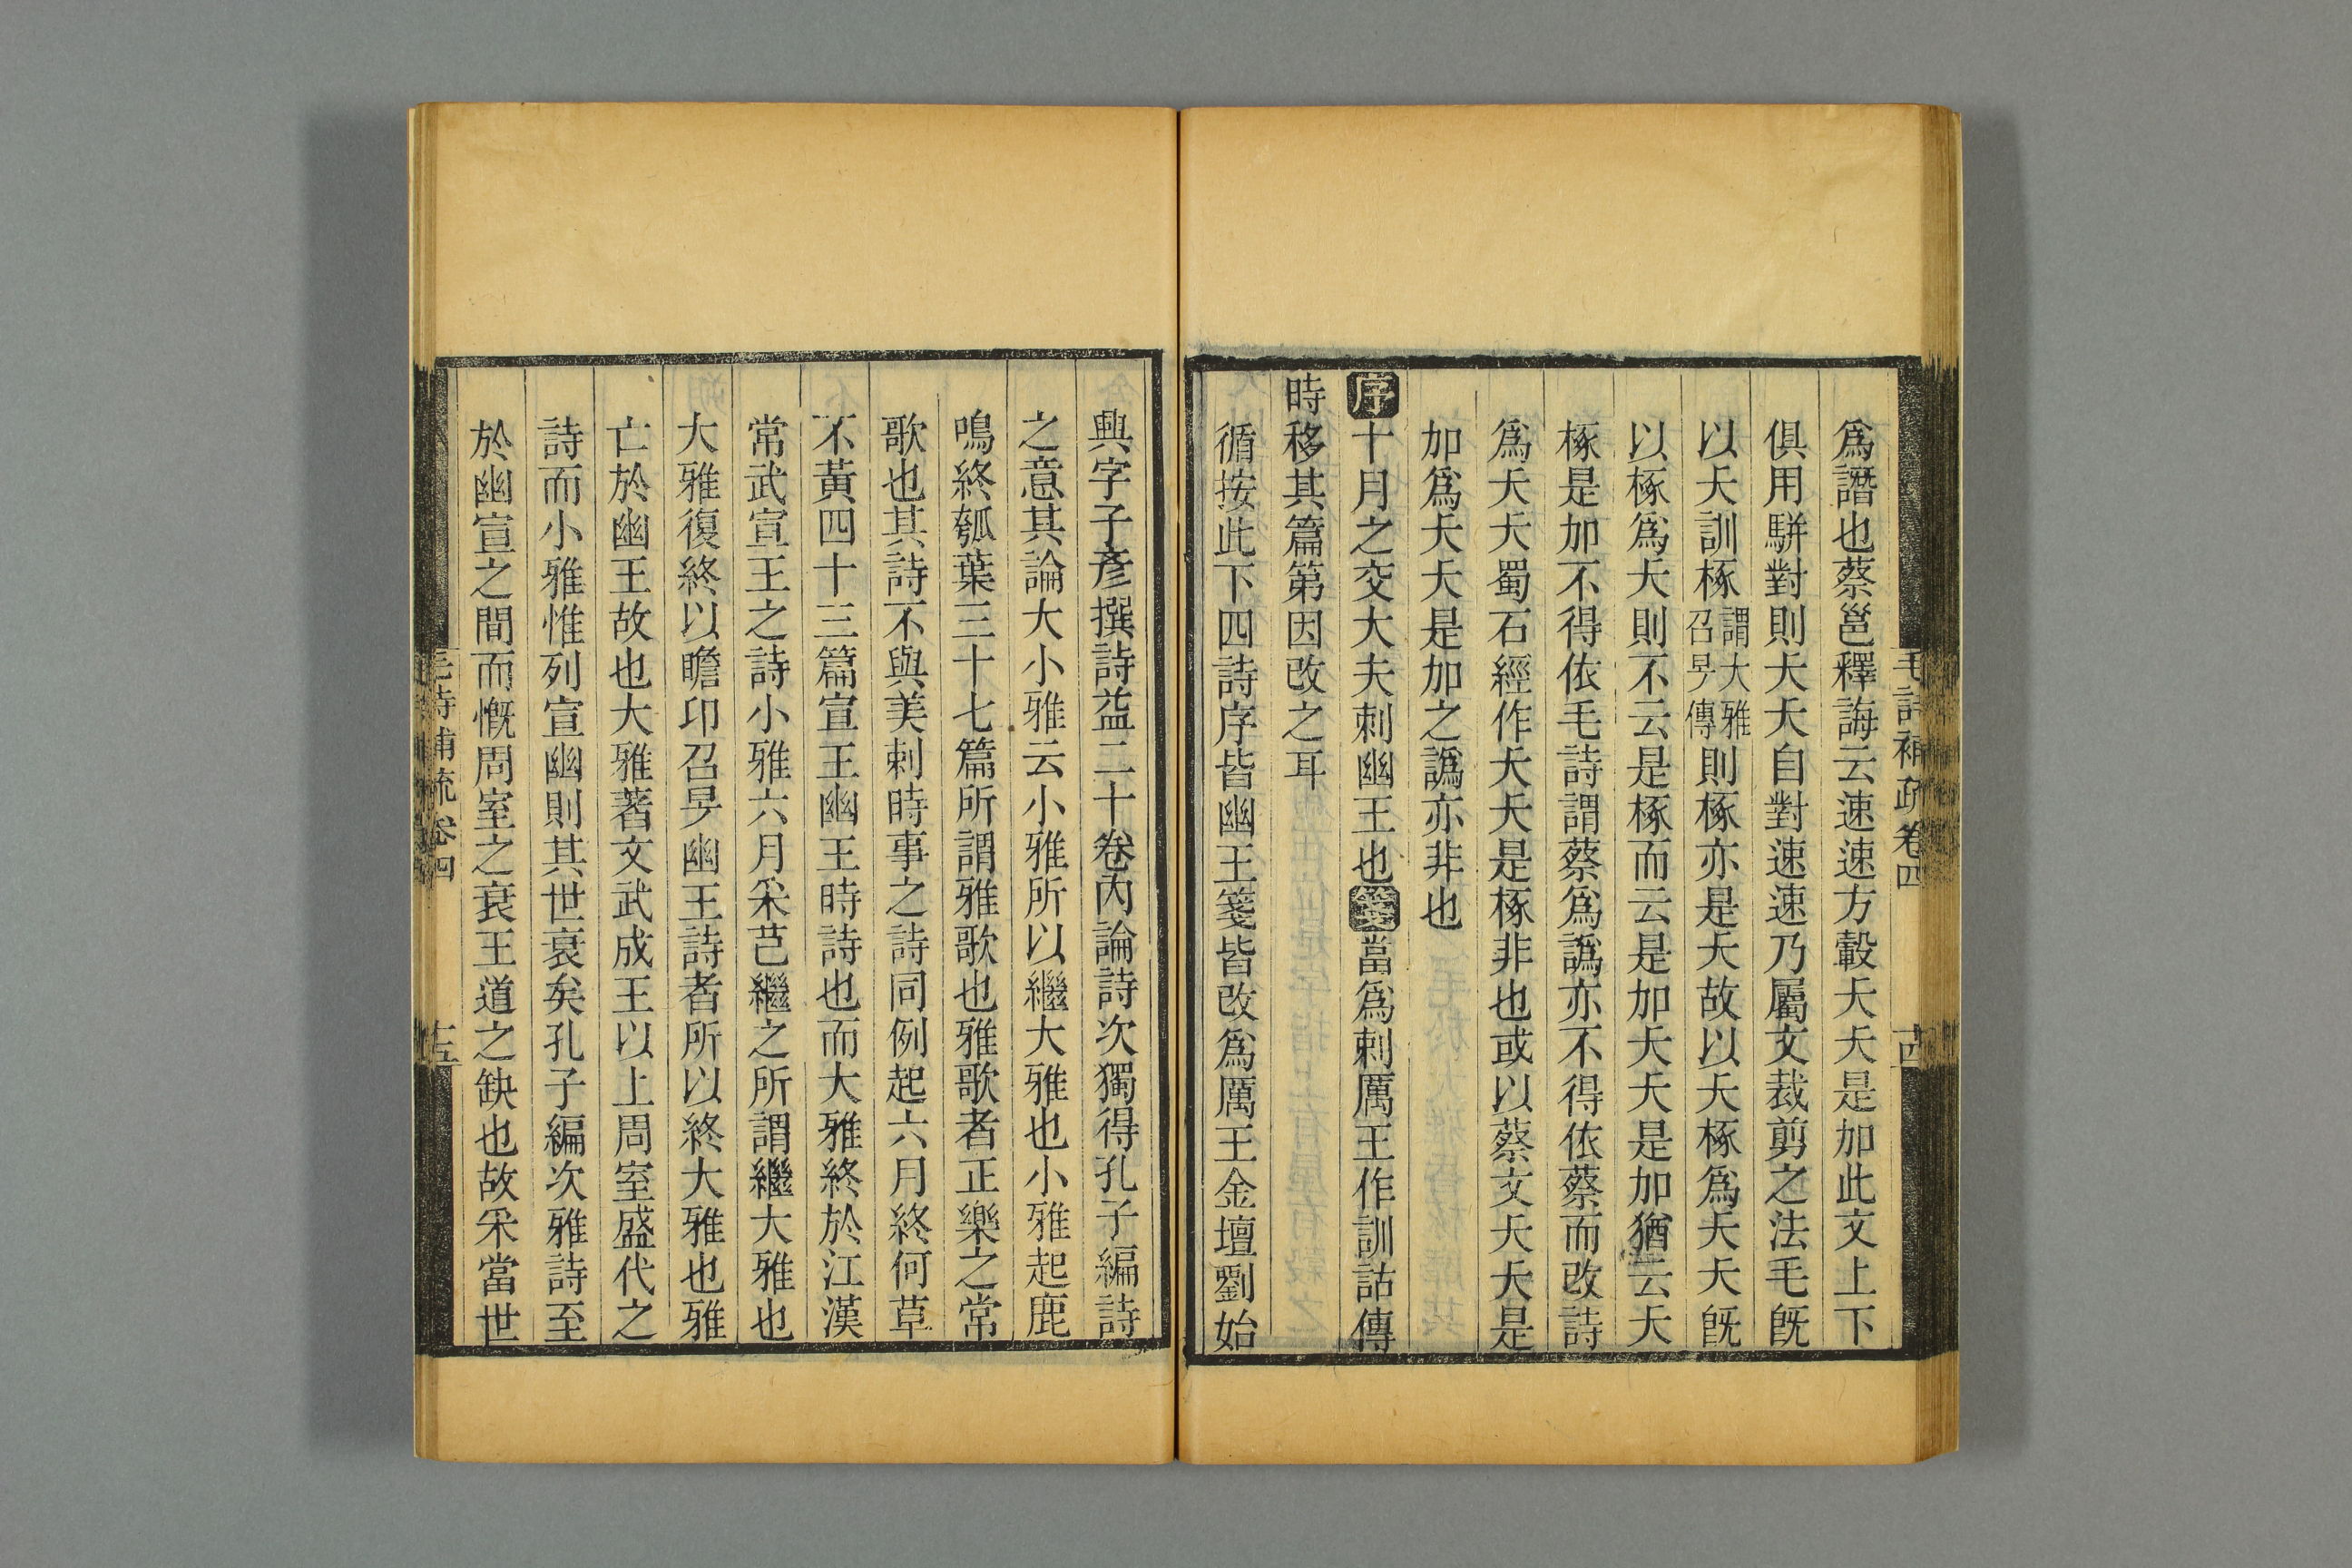 毛詩補疏卷四
十四
爲譖也蔡邕釋誨云速速方轂夭夭是加此文上下
俱用駢對則夭夭自對速速乃屬文裁剪之法毛旣
以夭訓椓謂大雅召旻傳則椓亦是夭故以夭椓爲夭夭旣
以椓爲夭則不云是椓而云是加夭夭是加猶云夭
椓是加不得依毛詩謂蔡爲譌亦不得依蔡而改詩
爲夭夭蜀石經作夭夭是椓非也或以蔡文夭夭是
加爲夭夭是加之譌亦非也
序十月之交大夫刺幽王也箋當爲刺厲王作訓詁傳
時移其篇第因改之耳
循按此下四詩序皆幽王箋皆改爲厲王金壇劉始
興字子彥撰詩益二十卷內論詩次獨得孔子編詩
之意其論大小雅云小雅所以繼大雅也小雅起鹿
鳴終瓠葉三十七篇所謂雅歌也雅歌者正樂之常
歌也其詩不與美刺時事之詩同例起六月終何草
不黃四十三篇宣王幽王時詩也而大雅終於江漢
常武宣王之詩小雅六月采芑繼之所謂繼大雅也
大雅復終以瞻卬召旻幽王詩者所以終大雅也雅
亡於幽王故也大雅著文武成王以上周室盛代之
詩而小雅惟列宣幽則其世衰矣孔子編次雅詩至
於幽宣之間而慨周室之衰王道之缺也故采當世
毛詩補疏卷四
十五